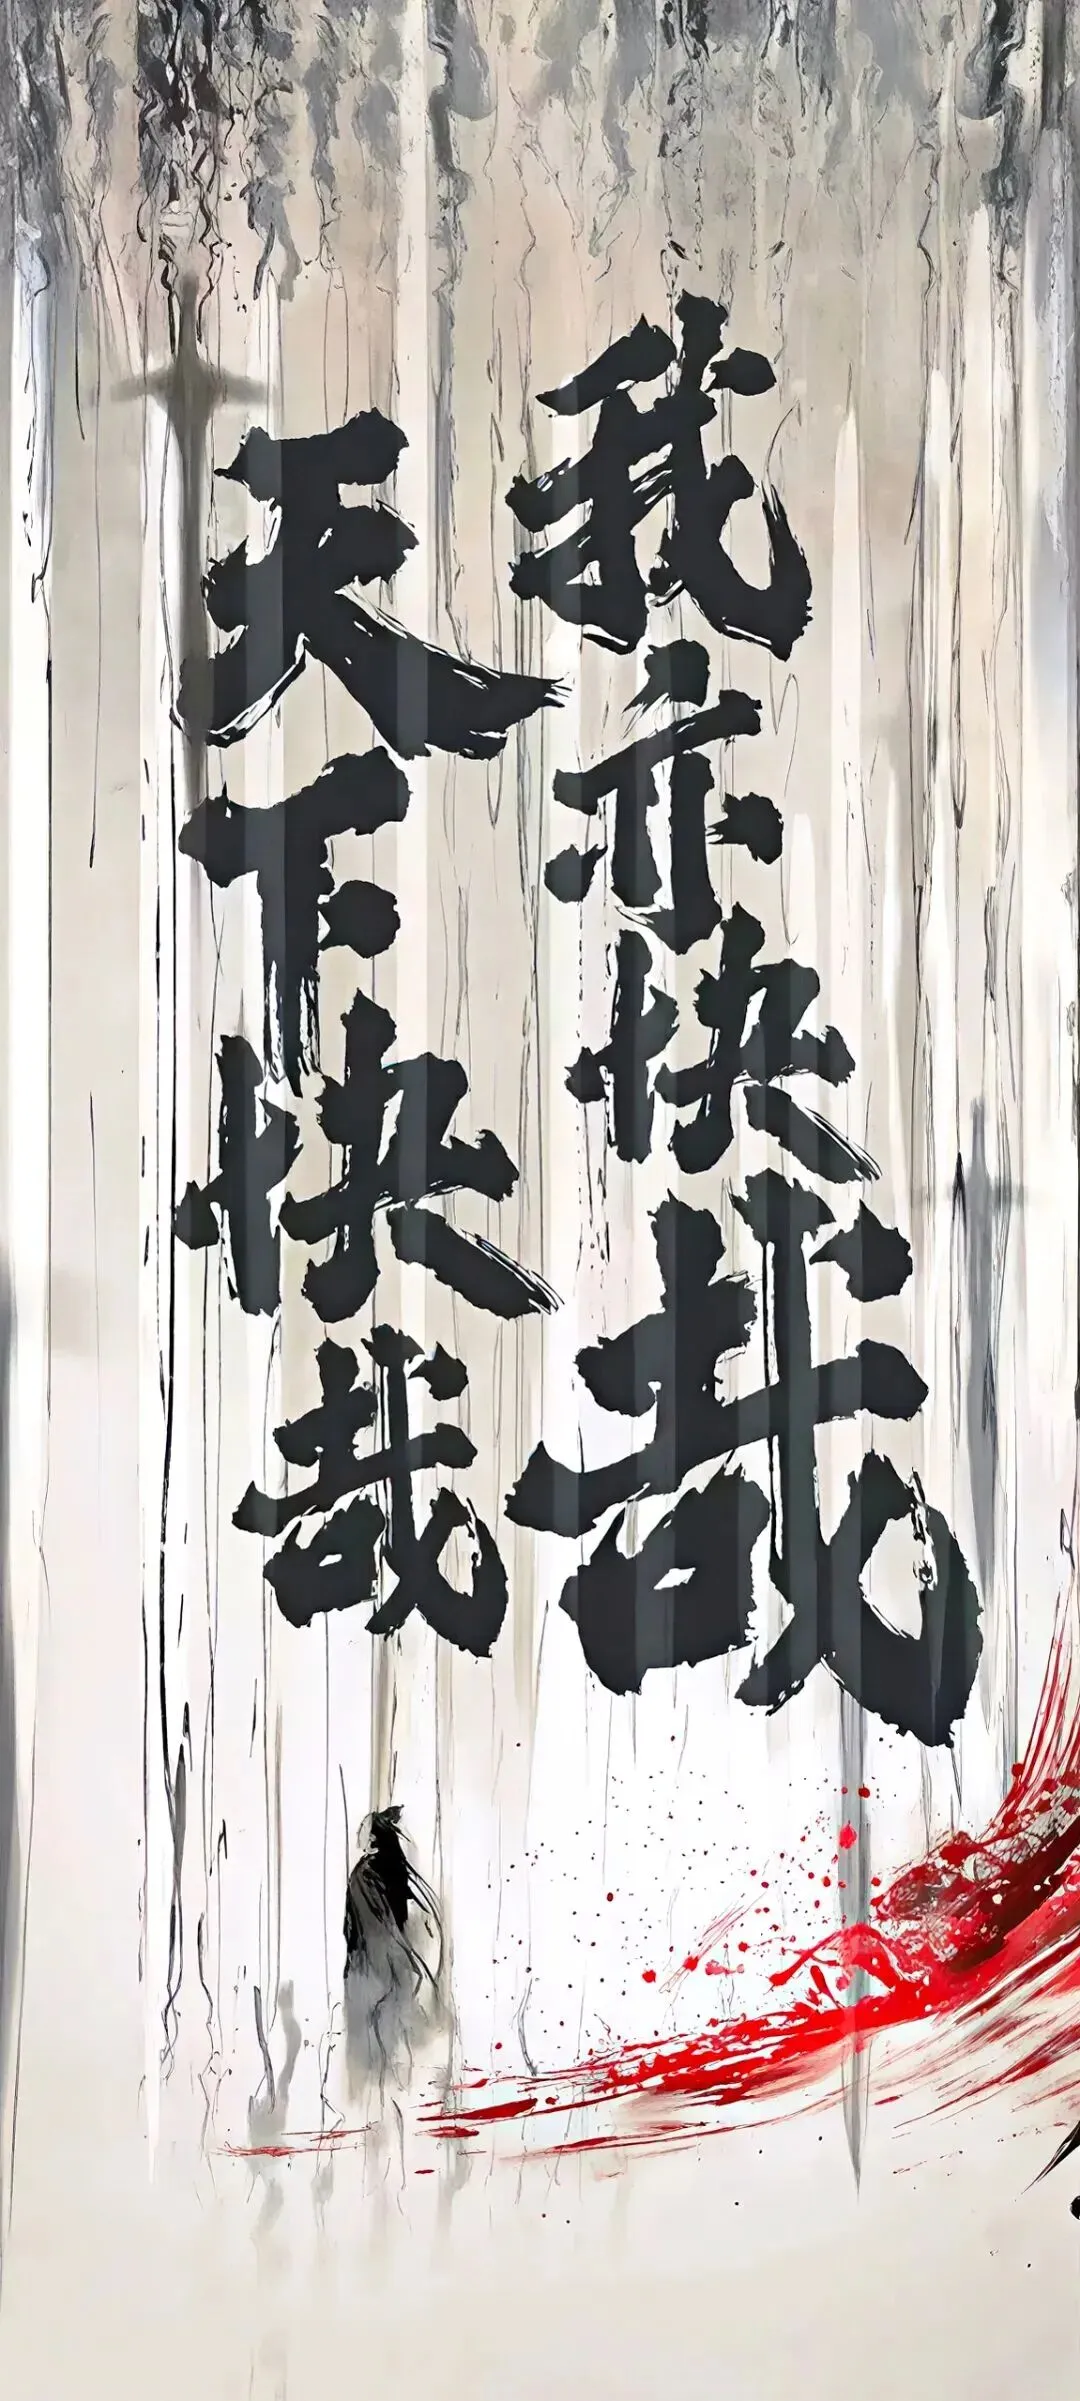 我亦快哉
天下快哉